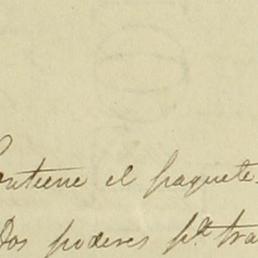 Contiene el paquete.
Dos poderes pª tra